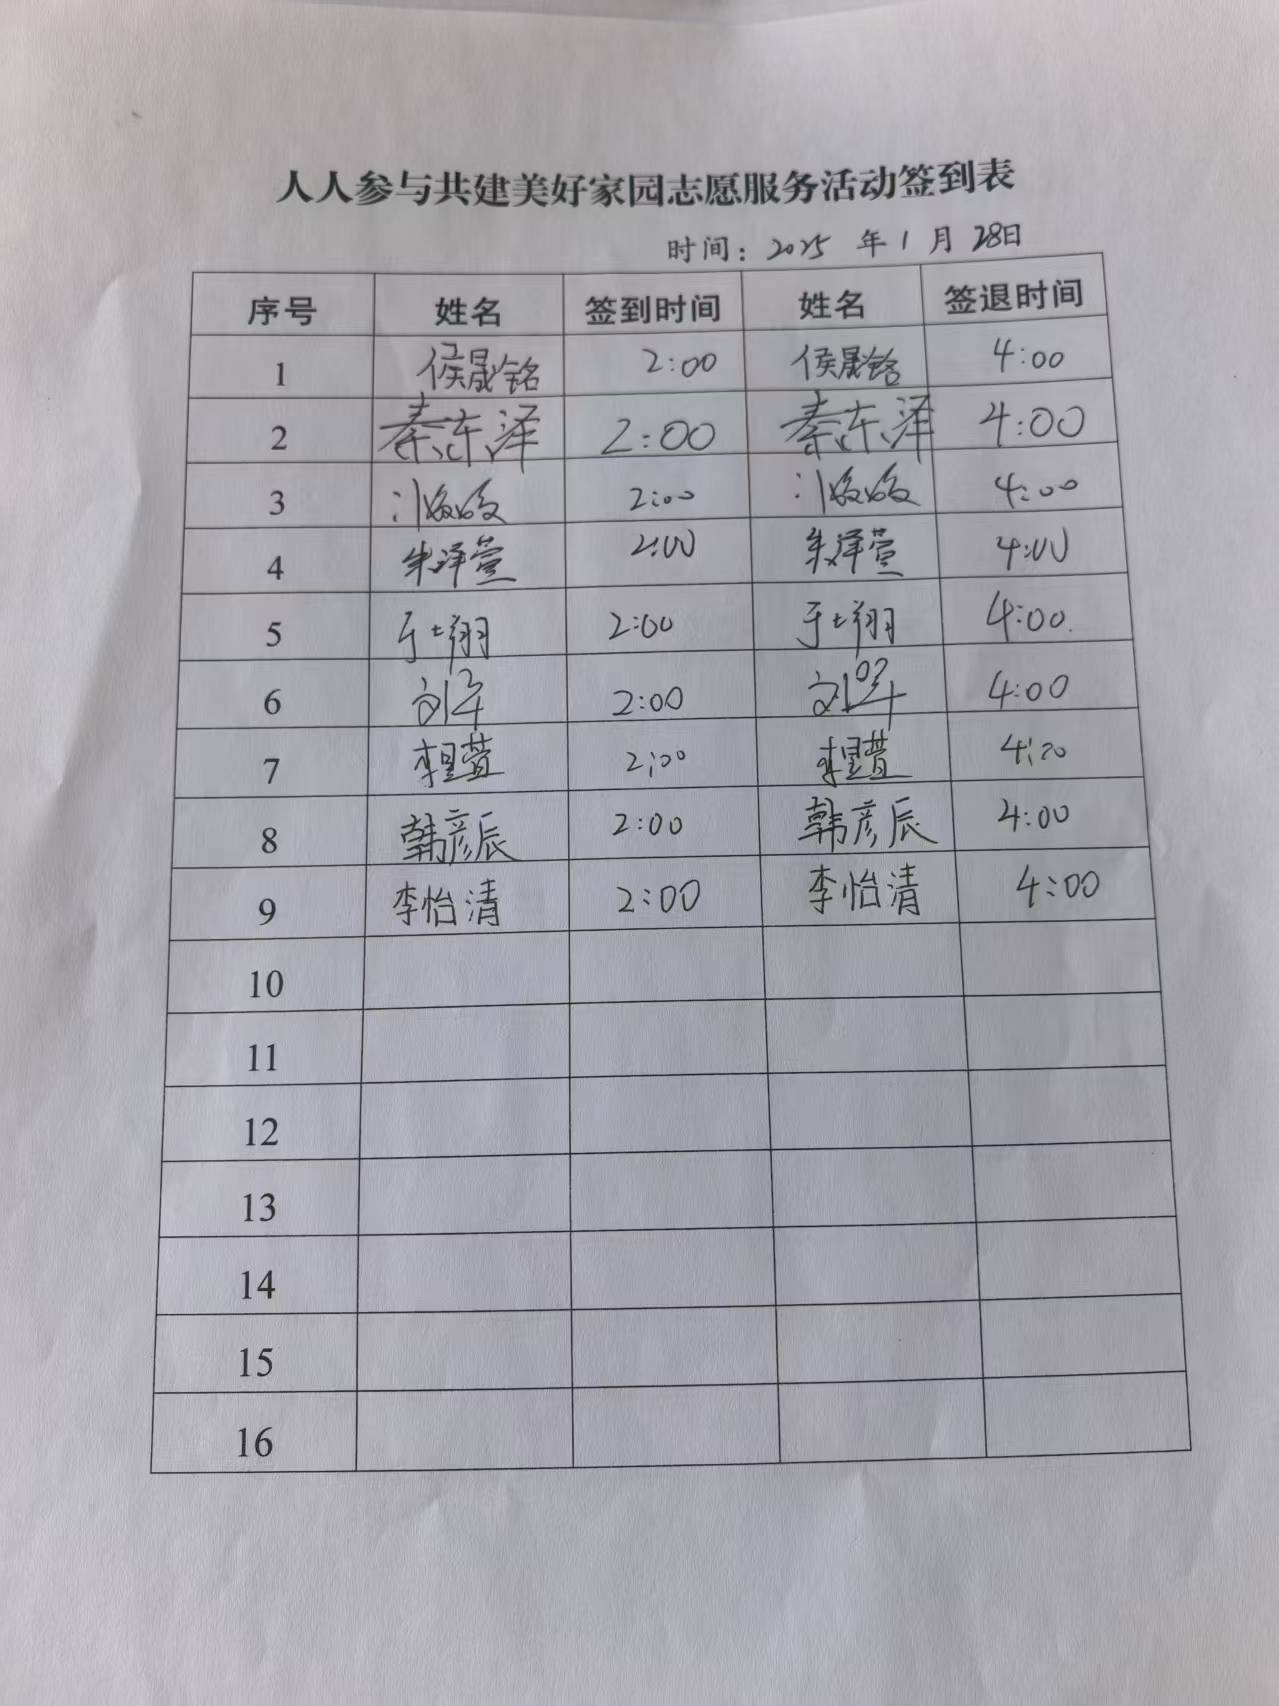 人人参与共建美好家园志愿服务活动签到表
时间：2025 年 1 月 28日
序号 姓名 签到时间 姓名 签退时间
1 侯晟铭 2:00 侯晟铭 4:00
2 秦东泽 2:00 秦东泽 4:00
3 2:00 4:00
4 朱泽萱 2:00 朱泽萱 4:00
5 于士翔 2:00 于士翔 4:00
6 2:00 4:00
7 2:00 4:20
8 韩彦辰 2:00 韩彦辰 4:00
9 李怡清 2:00 李怡清 4:00
10
11
12
13
14
15
16